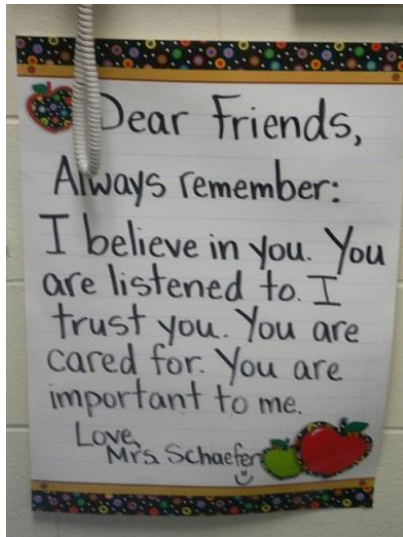 Dear Friends,
Always remember:
I believe in you. You
are listened to. I
trust you. You are
cared for. You are
important to me.
Love,
Mrs. Schaefer